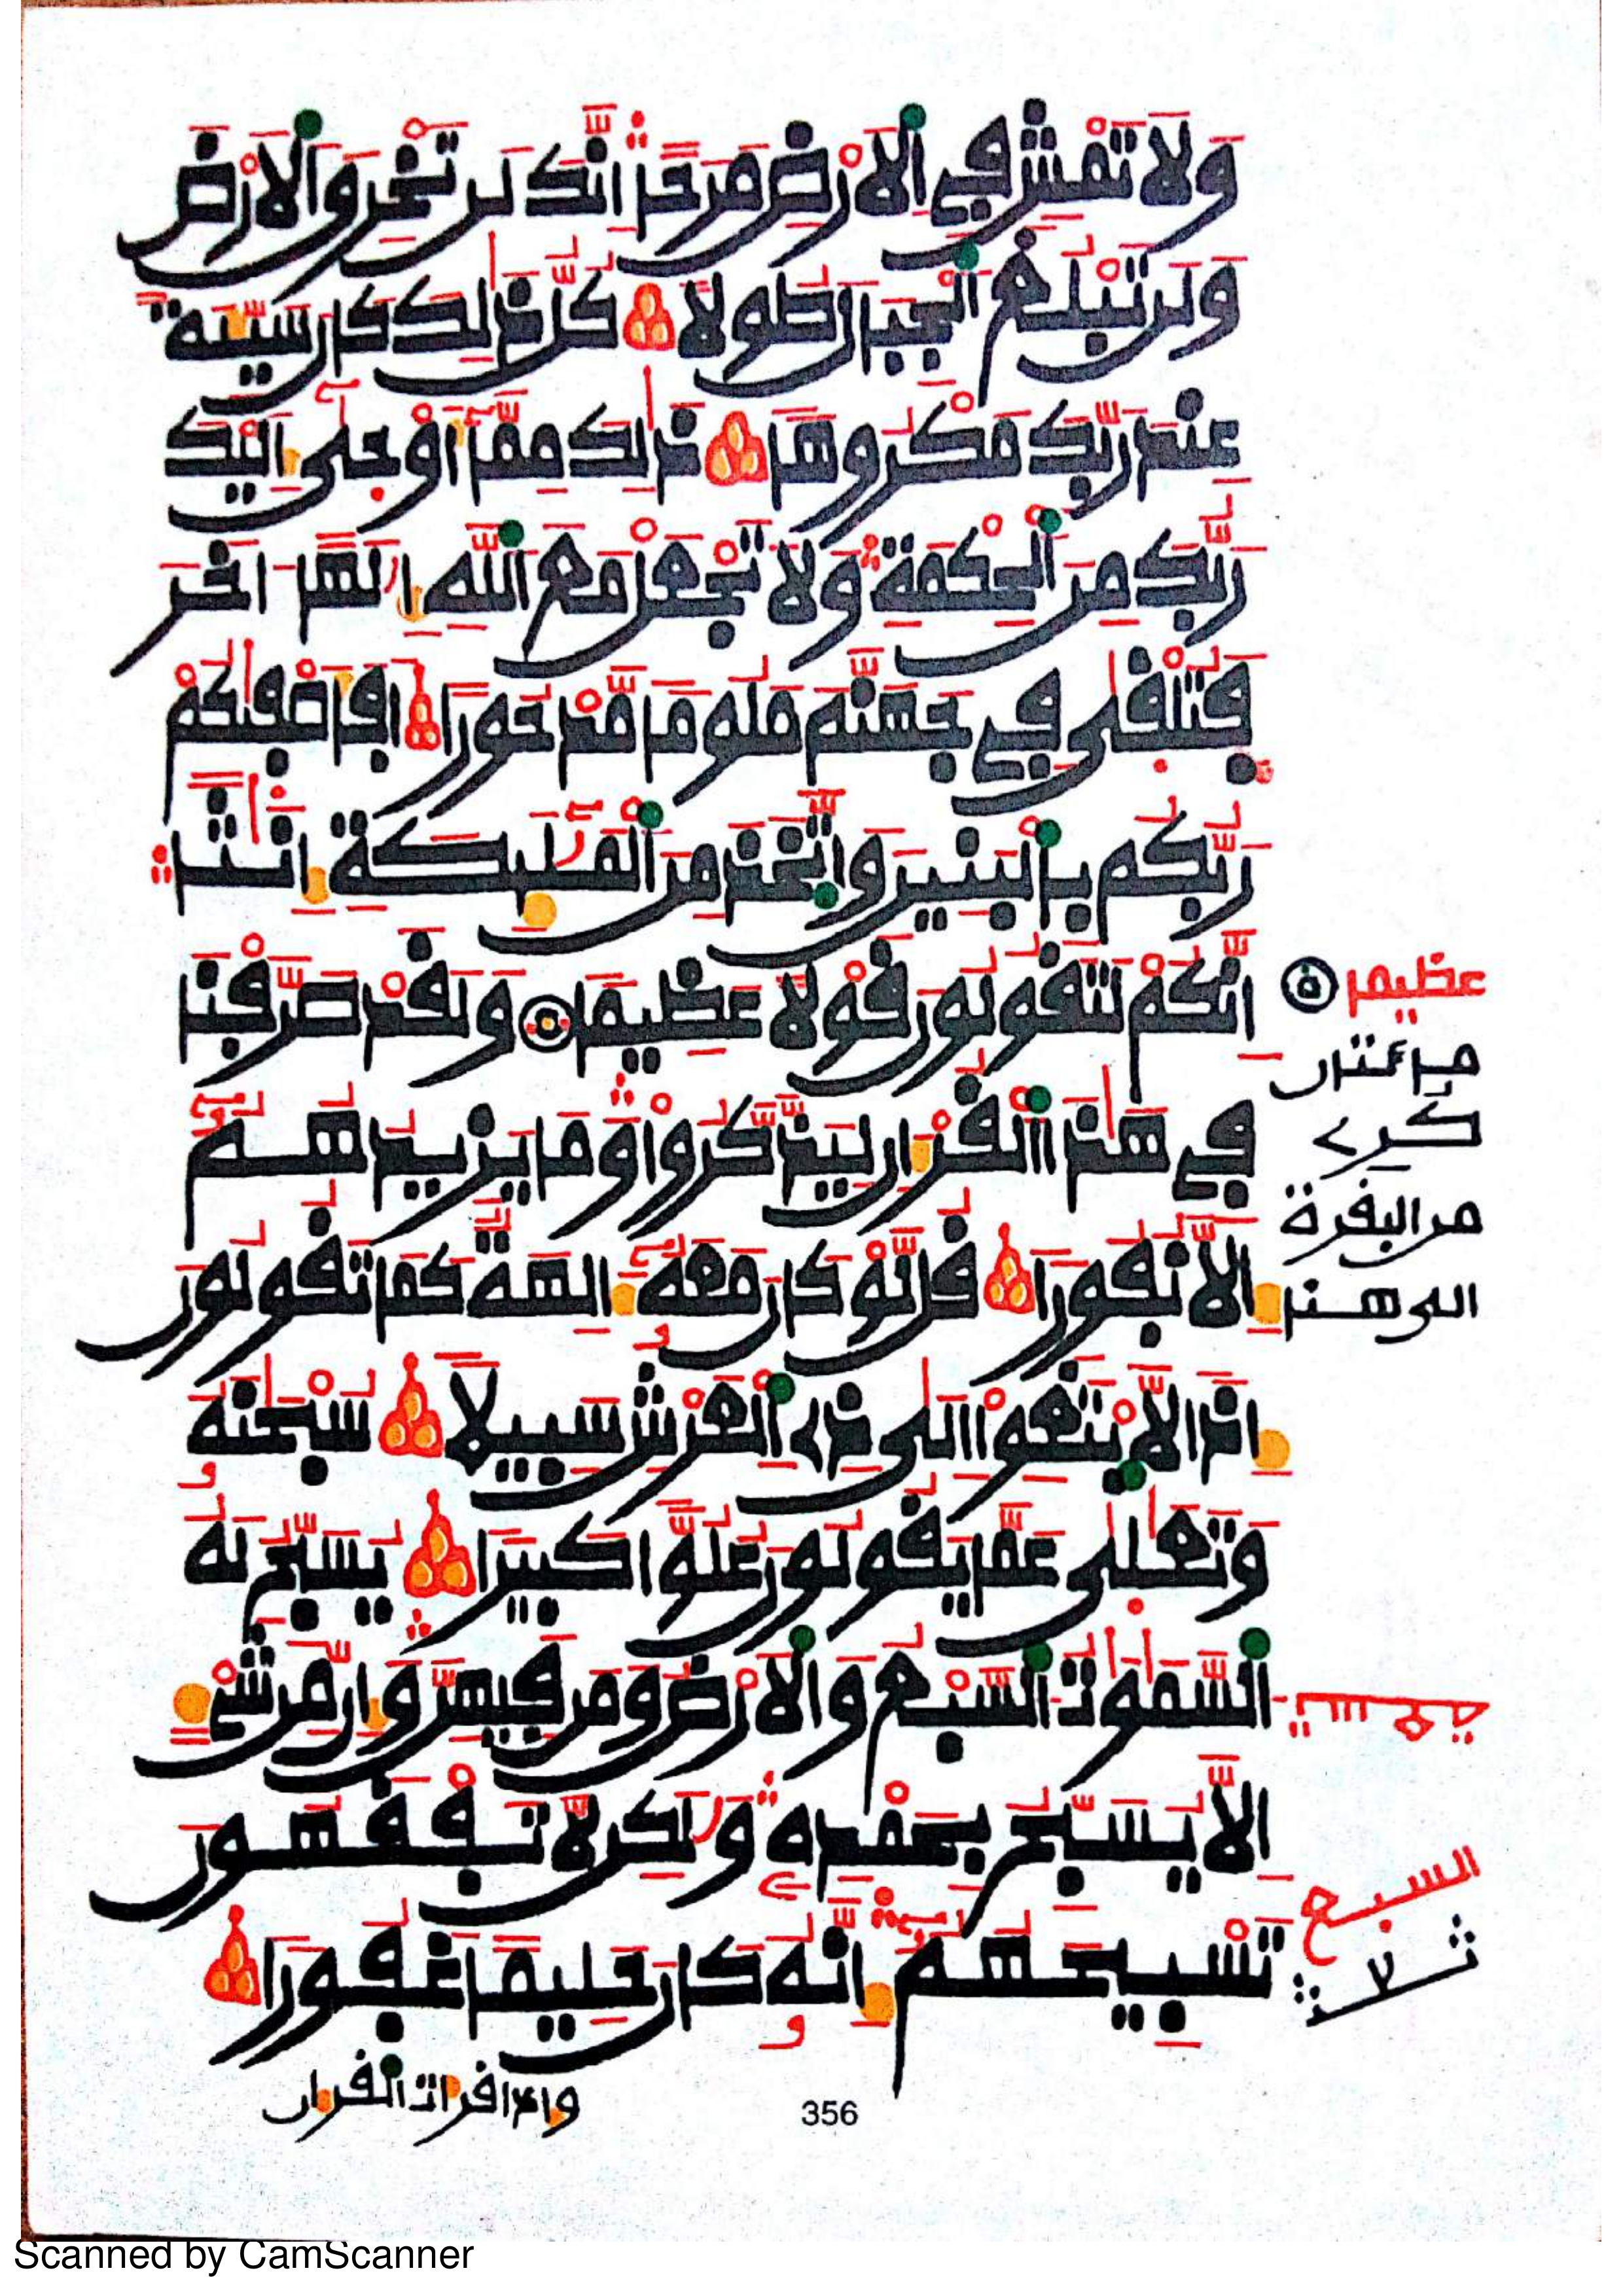 وَلَا تَمْشِ فِي اِلَارْضِ مَرَحًا اِنَّكَ لَن تَخْرِقَ اَلَارْضَ
وَلَن تَبْلُغَ اَلْجِبَالَ طُولًا كُلُّ ذَٰلِكَ كَانَ سَيِّئَةً
عِندَ رَبِّكَ مَكْرُوهًا ذَٰلِكَ مِمَّآ أَوْحَىٰٓ إِلَيْكَ
رَبُّكَ مِنَ اَلْحِكْمَةِ وَلَا تَجْعَلْ مَعَ اَللَّهِ إِلَٰهًا اٰخَرَ
فَتُلْقَىٰ فِي جَهَنَّمَ مَلُومًا مَّدْحُورًا اَفَأَصْفَىٰكُمْ
رَبُّكُم بِالْبَنِينَ وَاتَّخَذَ مِنَ اَلْمَلَٰٓئِكَةِ إِنَٰثًا
اِنَّكُمْ لَتَقُولُونَ قَوْلًا عَظِيمًا وَلَقَدْ صَرَّفْنَا
عظيما
فِي هَٰذَا اَلْقُرْءَانِ لِيَذَّكَّرُوا وَمَا يَزِيدُهُمُۥٓ
إِلَّا نُفُورًا قُل لَّوْ كَانَ مَعَهُۥٓ ءَالِهَةٌ كَمَا تَقُولُونَ
من البقرة
الى هنا
إِذًا لَّابْتَغَوْا اِلَىٰ ذِي اِلْعَرْشِ سَبِيلًا سُبْحَٰنَهُۥ
وَتَعَٰلَىٰ عَمَّا يَقُولُونَ عُلُوًّا كَبِيرًا يُسَبِّحُ لَهُ
اُلسَّمَٰوَٰتُ اُلسَّبْعُ وَالَارْضُ وَمَن فِيهِنَّ وَإِن مِّن شَيْءٍ
اِلَّا يُسَبِّحُ بِحَمْدِهِۦ وَلَٰكِن لَّا تَفْقَهُونَ
تَسْبِيحَهُمُۥٓ إِنَّهُۥ كَانَ حَلِيمًا غَفُورًا
السبع
وإذا قرأت القرءان
356
Scanned by CamScanner